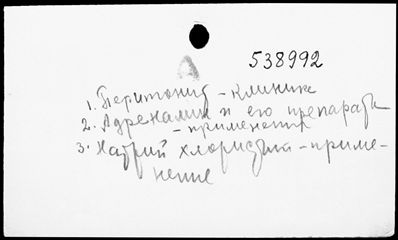 538992
А
1. Перитонит - клиника
2. Адреналин и его препараты
- применение
3. Натрий хлористый - приме-
нение